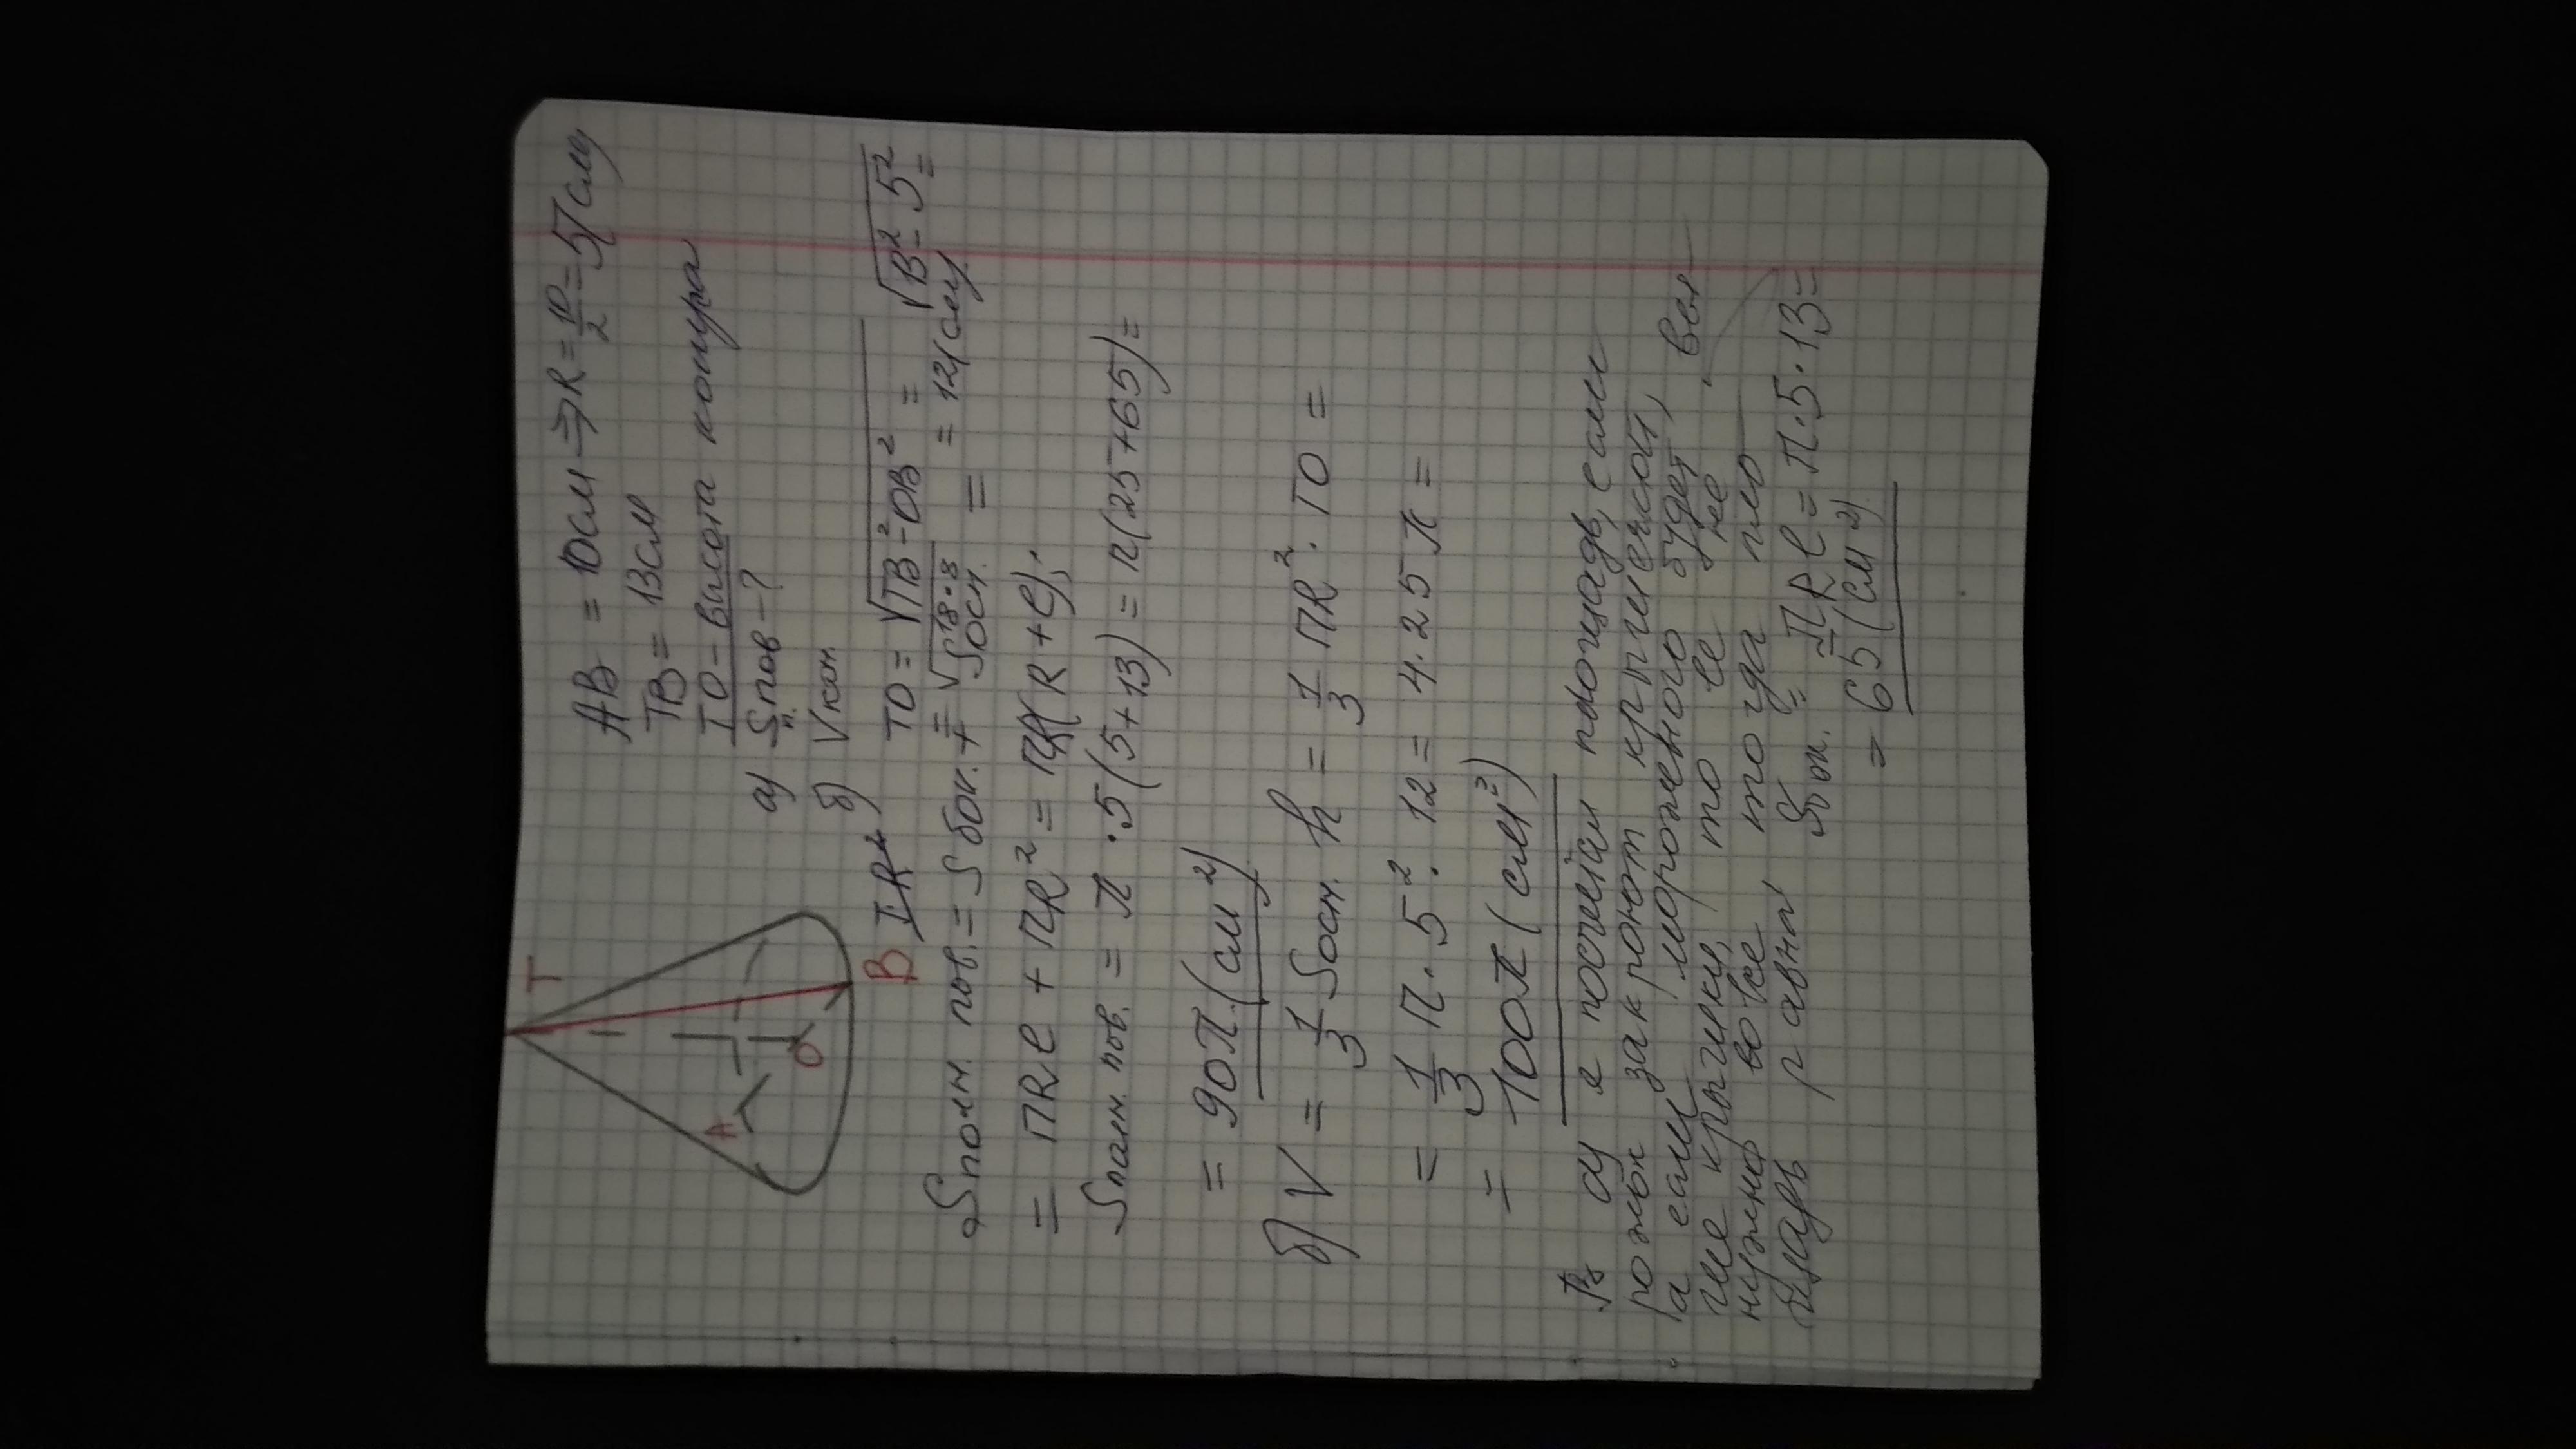 AB = 10см ⇒ R = 10/2 = 5(см)
TB = 13см
TO – высота конуса
а) Sпов – ?
б) Vкон.
T
A
O
B
TO = √TB² - OB² = √13² - 5² =
= √18·8 = 12(см)
Sполн. пов. = S бок. + Sосн. =
= πRl + πR² = πR(R + l);
Sполн. пов. = π·5(5+13) = π(25+65) =
= 90π(см²)
б) V = 1/3 Sосн. h = 1/3 πR²·TO =
= 1/3 π·5²·12 = 4·25π =
= 100π(см³)
В а) я посчитал площадь, если
рожок закроют крышечкой,
а если у мороженого будет
не крышечки, то ее не
нужно вовсе тогда пло
щадь равна Sбок. = πRl = π·5·13 =
= 65(см²)